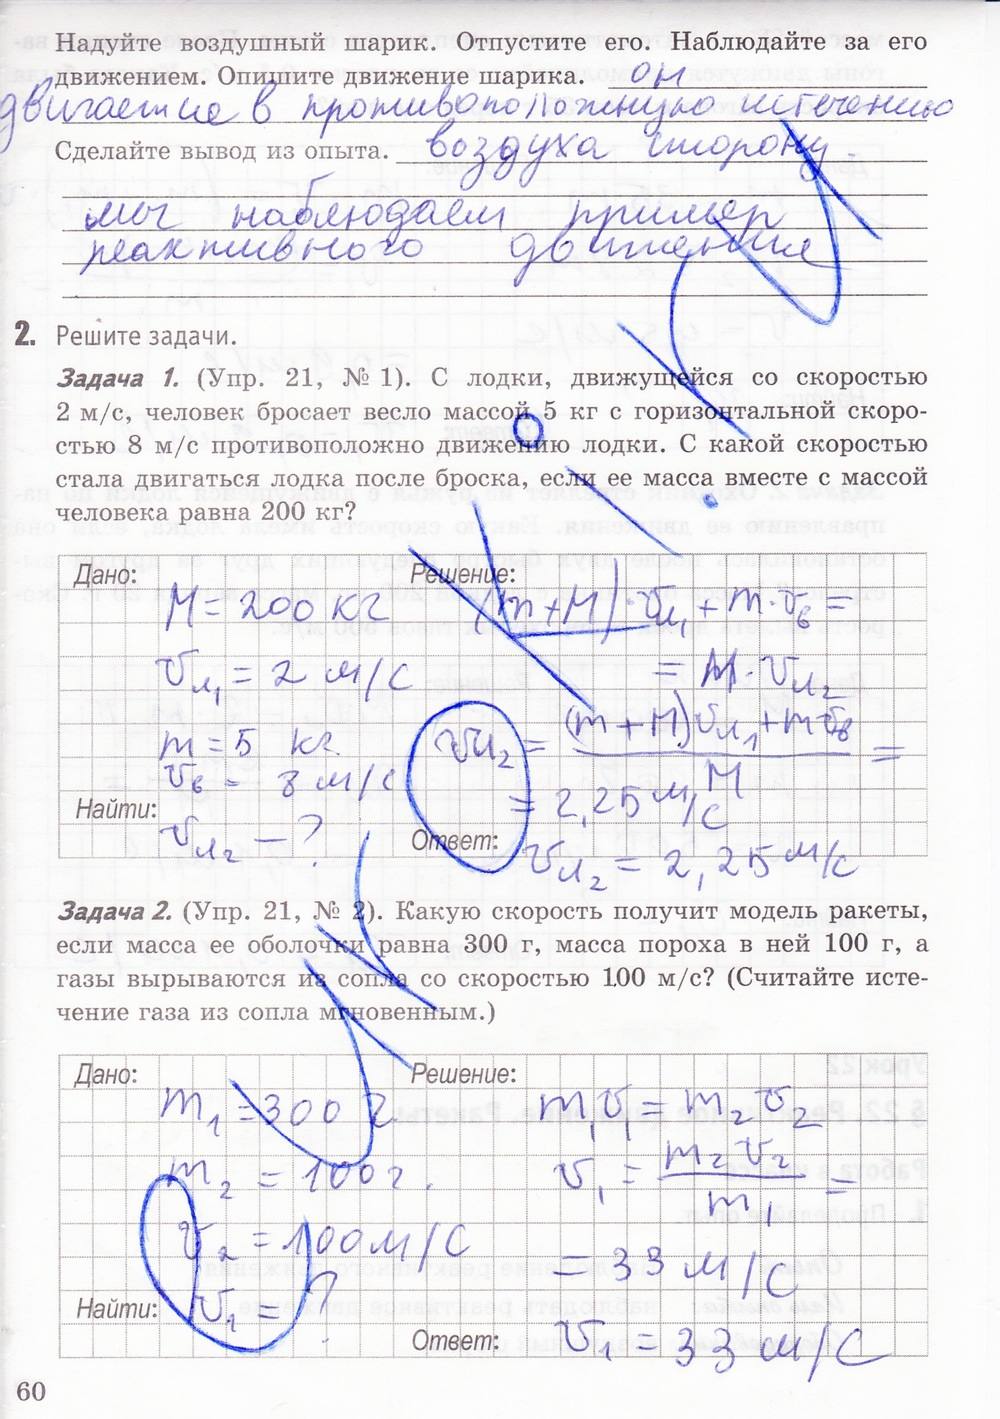 Надуйте воздушный шарик. Отпустите его. Наблюдайте за его
движением. Опишите движение шарика. он
двигается в противоположную истечению
воздуха сторону
Сделайте вывод из опыта.
мы наблюдаем пример
реактивного движения
2. Решите задачи.
Задача 1. (Упр. 21, № 1). С лодки, движущейся со скоростью
2 м/с, человек бросает весло массой 5 кг с горизонтальной скоро-
стью 8 м/с противоположно движению лодки. С какой скоростью
стала двигаться лодка после броска, если ее масса вместе с массой
человека равна 200 кг?
Дано:
M = 200 кг
v л₁ = 2 м/с
m = 5 кг
v в = 8 м/с
Найти:
v л₂ – ?
Решение:
(m+M)·v л₁ + m·v в =
= M·v л₂
v л₂ = (m+M)v л₁ + m v в / M =
= 2,25 м/с
Ответ: v л₂ = 2,25 м/с
Задача 2. (Упр. 21, № 2). Какую скорость получит модель ракеты,
если масса ее оболочки равна 300 г, масса пороха в ней 100 г, а
газы вырываются из сопла со скоростью 100 м/с? (Считайте исте-
чение газа из сопла мгновенным.)
Дано:
m₁ = 300 г
m₂ = 100 г.
v₂ = 100 м/с
Найти:
v₁ = ?
Решение:
m₁v₁ = m₂v₂
v₁ = m₂v₂ / m₁ =
= 33 м/с
Ответ: v₁ = 33 м/с
60